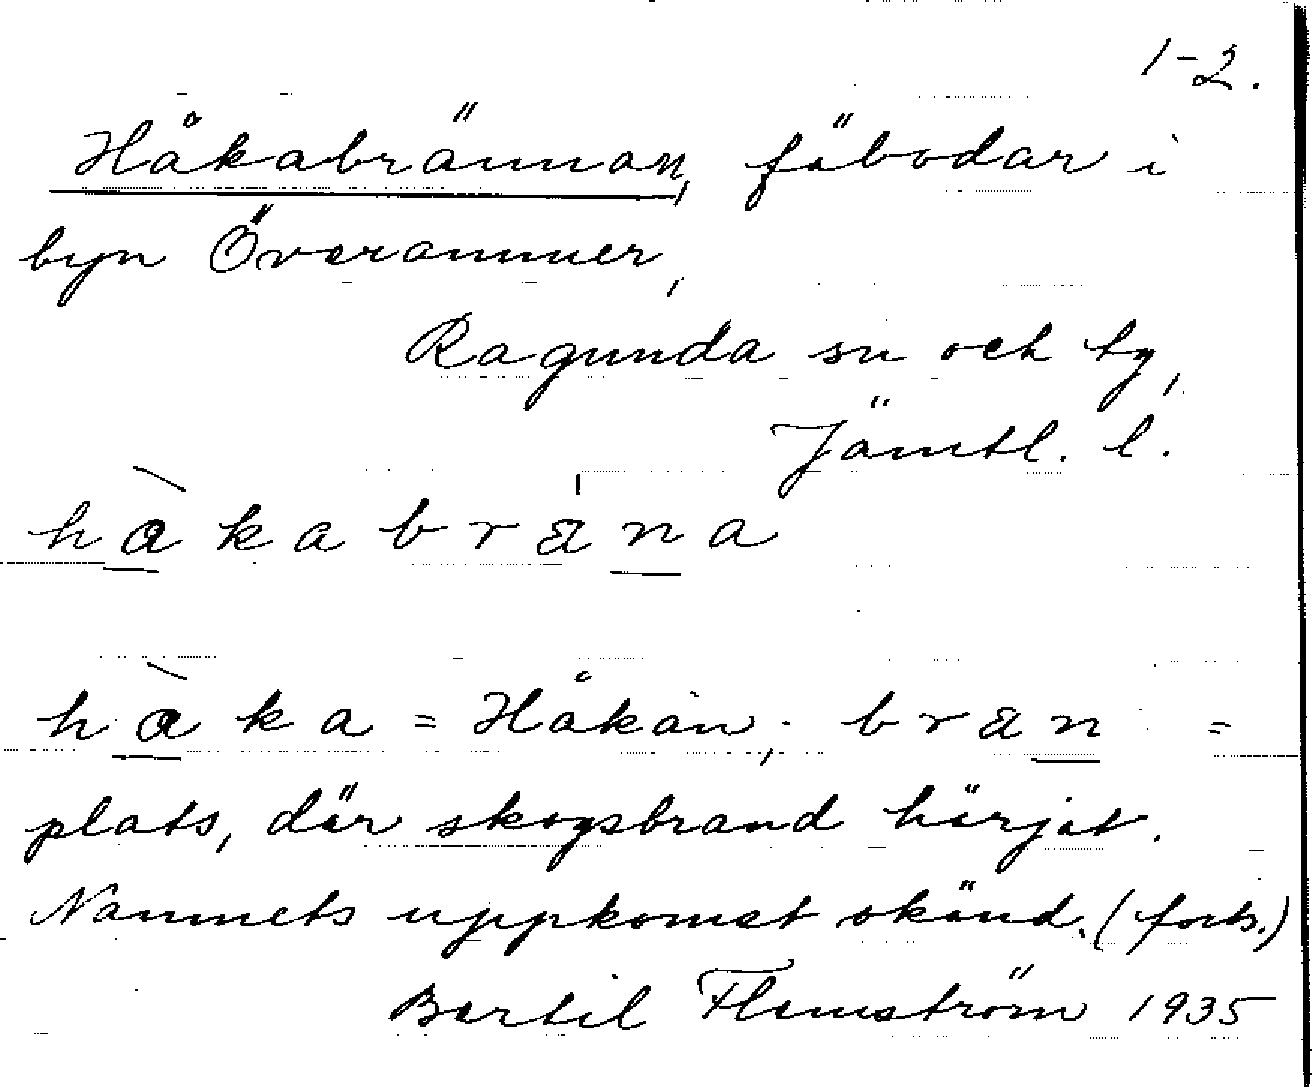 1-2.
Håkabrännan, fäbodar i
byn Överammer,
Ragunda sn och tg,
Jämtl. l.
hàkabräna
hàka = Håkan; brän =
plats, där skogsbrand härjat.
Namnets uppkomst okänd. (forts.)
Bertil Flemström 1935